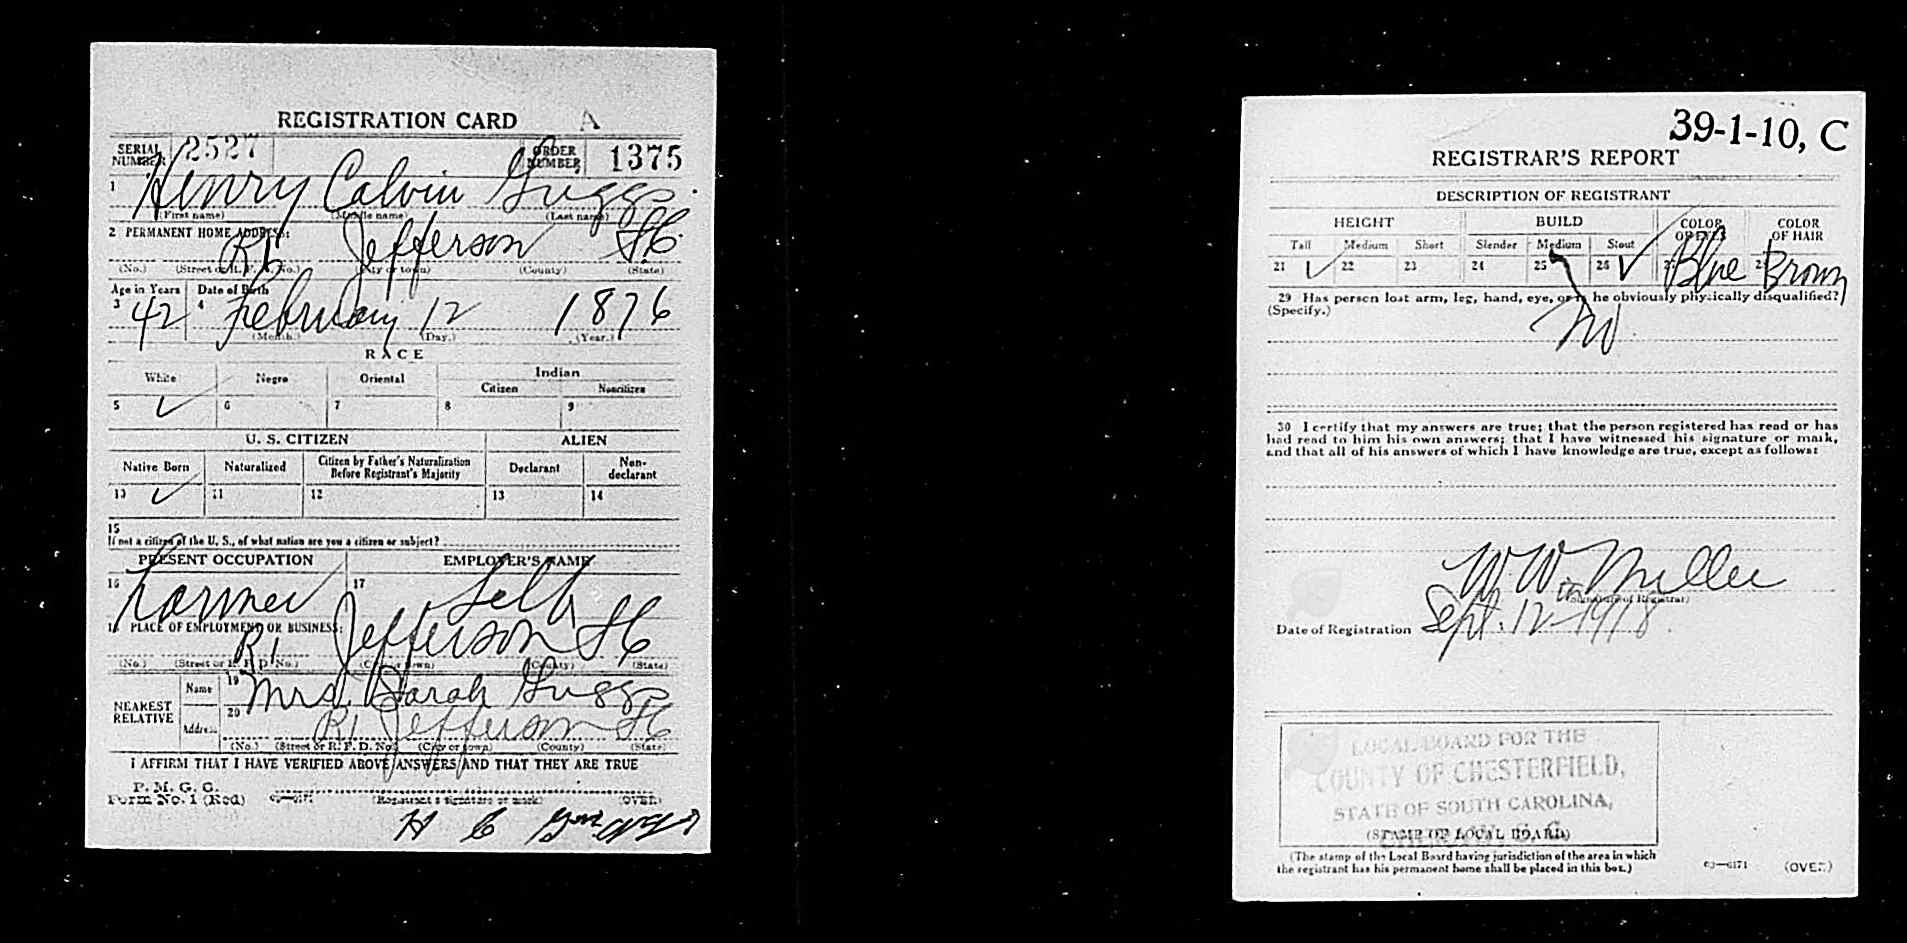 REGISTRATION CARD A
SERIAL NUMBER 2527 ORDER NUMBER 1375
1 Henry Calvin Griggs
(First name) (Middle name) (Last name)
2 PERMANENT HOME ADDRESS:
R1 Jefferson SC
(No.) (Street or R. F. D. No.) (City or town) (County) (State)
Age in Years Date of Birth
3 42 4 February 12 1876
(Month.) (Day.) (Year.)
RACE
White Negro Oriental Indian
Citizen Noncitizen
5 ✓ 6 7 8 9
U. S. CITIZEN ALIEN
Native Born Naturalized Citizen by Father's Naturalization Before Registrant's Majority Declarant Non-declarant
10 ✓ 11 12 13 14
15
If not a citizen of the U. S., of what nation are you a citizen or subject?
PRESENT OCCUPATION EMPLOYER'S NAME
16 Farmer 17 Self
18 PLACE OF EMPLOYMENT OR BUSINESS:
R1 Jefferson SC
(No.) (Street or R. F. D. No.) (City or town) (County) (State)
NEAREST RELATIVE
Name 19 Mrs. Sarah Griggs
Address 20 R1 Jefferson SC
(No.) (Street or R. F. D. No.) (City or town) (County) (State)
I AFFIRM THAT I HAVE VERIFIED ABOVE ANSWERS AND THAT THEY ARE TRUE
P. M. G. O.
Form No. 1 (Red) 03—6171 (Registrant's signature or mark) (OVER)
H C
39-1-10, C
REGISTRAR'S REPORT
DESCRIPTION OF REGISTRANT
HEIGHT BUILD COLOR OF EYES COLOR OF HAIR
Tall Medium Short Slender Medium Stout
21 ✓ 22 23 24 25 26 ✓ 27 Blue 28 Brown
29 Has person lost arm, leg, hand, eye, or is he obviously physically disqualified?
(Specify.)
No
30 I certify that my answers are true; that the person registered has read or has
had read to him his own answers; that I have witnessed his signature or mark,
and that all of his answers of which I have knowledge are true, except as follows:
W W Miller
(Signature of Registrar)
Date of Registration Sept. 12 1918
LOCAL BOARD FOR THE
COUNTY OF CHESTERFIELD,
STATE OF SOUTH CAROLINA,
CHERAW, S. C.
(STAMP OF LOCAL BOARD)
(The stamp of the Local Board having jurisdiction of the area in which
the registrant has his permanent home shall be placed in this box.)
03—6171 (OVER)